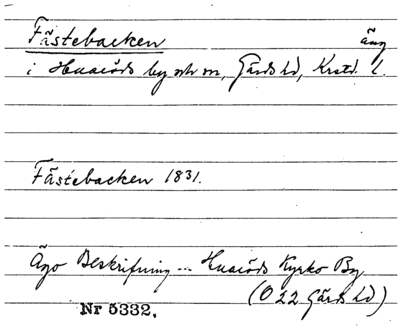 Fästebacken äng
i Huaröds by och sn, Gärds hd, Krstd. l.
Fästebacken 1831.
Ägo Beskrifning ... Huaröds Kyrko By
(O 22 Gärds hd)
Nr 5332.